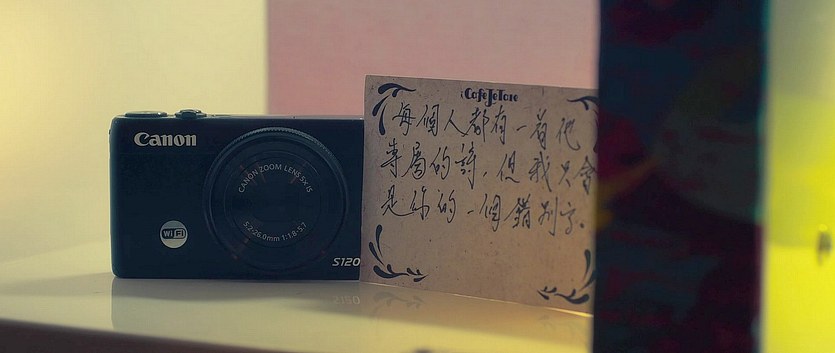 Canon
CANON ZOOM LENS 5x IS
5.2-26.0mm 1:1.8-5.7
WiFi
S120
CafeJeTaro
每個人都有一首他
專屬的詩,但我只會
是你的一個錯別字.